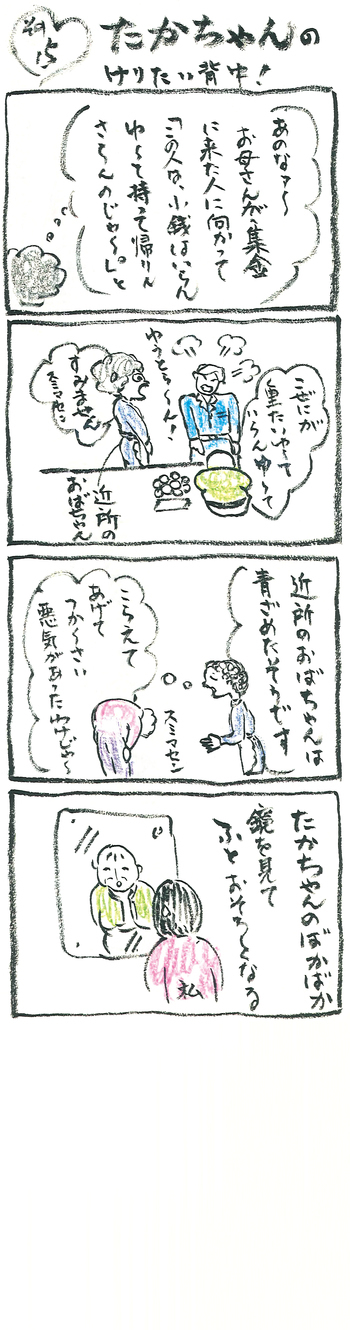 たかちゃんの
けりたい背中!
あのなァ〜
お母さんが集金
に来た人に向かって
「この人な、小銭はいらん
ゆ〜て持って帰りん
さらんのじゃ〜。」と
こぜにが
重たいゆ〜て
いらんゆ〜て
ゆうとら〜ん!
すみません
スミマセン
近所の
おばちゃん
近所のおばちゃんは
青ざめたそうです
スミマセン
こらえて
あげて
つか〜さい
悪気があったわけじゃ〜
たかちゃんのばかばか
鏡を見て
ふとおそろしくなる
私